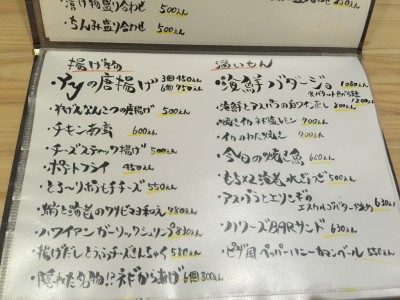 漬け物盛り合わせ 500えん
ちんみ盛り合わせ 500えん
揚げ物
の唐揚げ 3個450えん
6個750えん
なんこつの唐揚げ 500えん
チキン南蛮 600えん
チーズスティック揚げ 500えん
ポテトフライ 450えん
とろ〜りおもちチーズ 550えん
蛸と海老のワサビマヨ和え 780えん
ハワイアンガーリックシュリンプ 830えん
揚げだしとうふチーズあんちゃん 580えん
隠れた名物!!ネギからあげ 6個800えん
温いもん
海鮮バダージョ 1080えん
1200えん
海鮮とアスパラの白ワイン蒸し 800えん
700えん
イカのわた焼き 700えん
今日の焼き魚 600えん
もちと海老水ぎょうざ 500えん
アスパラとエリンギの
エスカルゴバター炒め 630えん
ハリーズBARサンド 630えん
ピザ風ペッパーハニーカマンベール 580えん